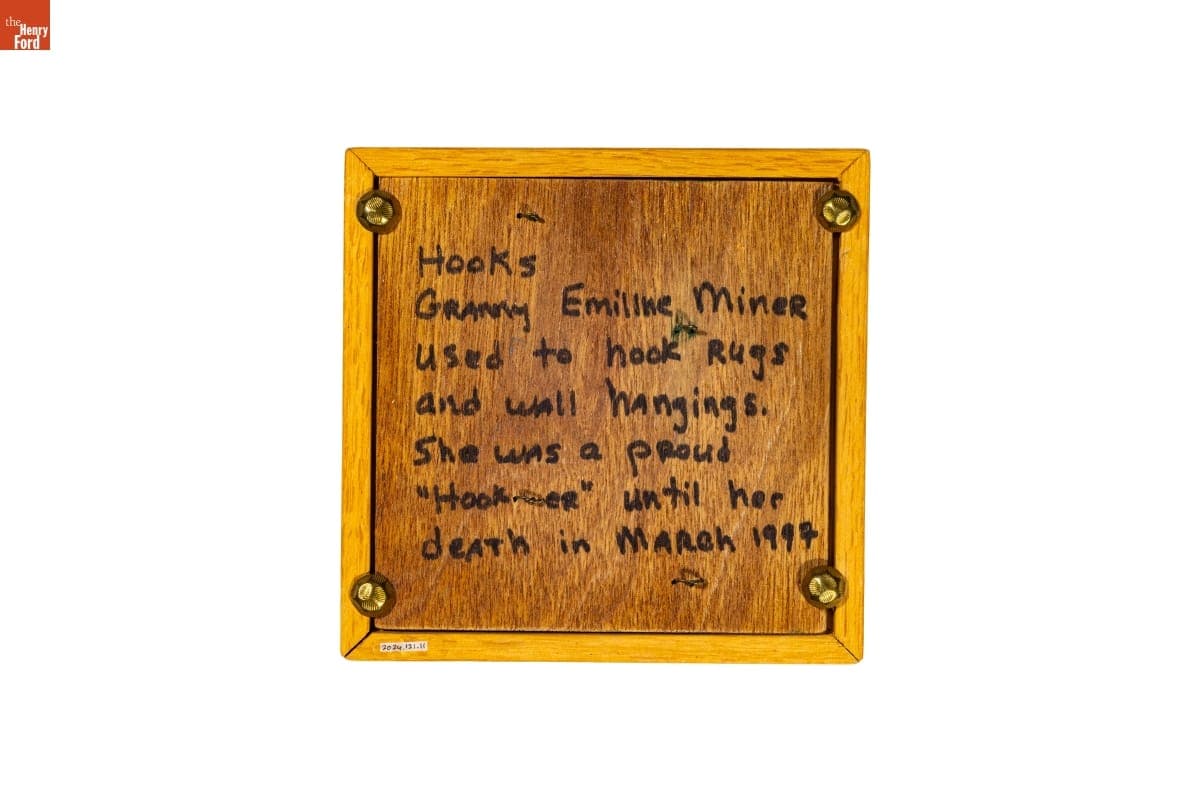 the
Henry
Ford
Hooks
GRANNY Emiline Miner
used to hook Rugs
and wall hangings.
She was a proud
"Hooker" until her
death in March 1997
2024.131.11